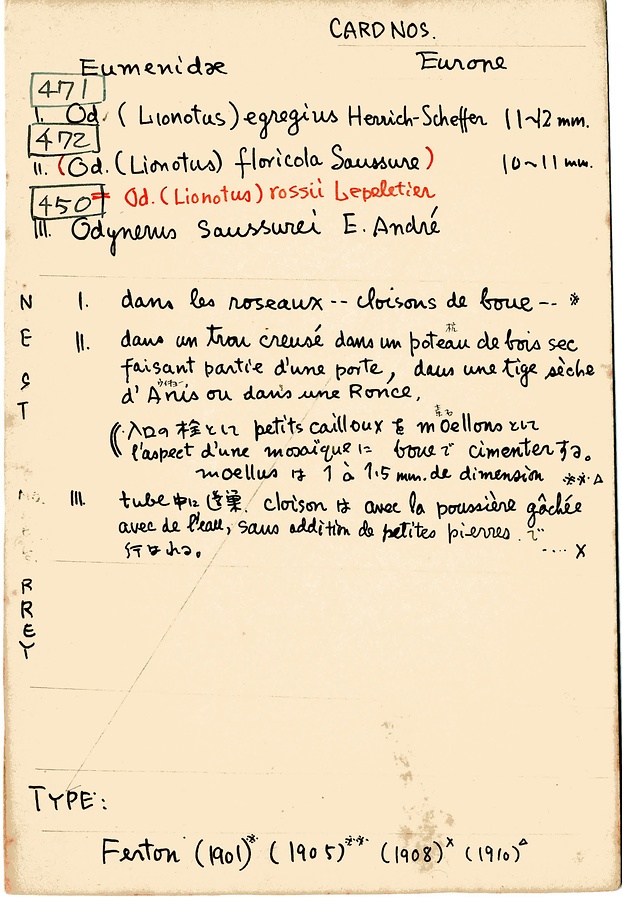 CARD NOS.
Eumenidæ Europe
471
I. Od. (Lionotus) egregius Herrich-Scheffer 11~12 mm.
472
II. (Od. (Lionotus) floricola Saussure) 10~11 mm.
450 = Od. (Lionotus) rossii Lepeletier
III. Odynerus Saussurei E. André
NEST
I. dans les roseaux -- cloisons de boue -- ※
杭
II. dans un trou creusé dans un poteau de bois sec
faisant partie d'une porte, dans une tige sèche
d'Anis ou dans une Ronce,
(入口の栓として petits cailloux を moellons として
l'aspect d'une mosaïque に boue で cimenterする。
moellus は 1 à 1.5 mm. de dimension ※※△
III. tube中に造巣. cloison は avec la poussière gâchée
avec de l'eau, sans addition de petites pierres. で
行はれる。 ---- X
RREY
TYPE:
Ferton (1901)※ (1905)※※ (1908)x (1910)△